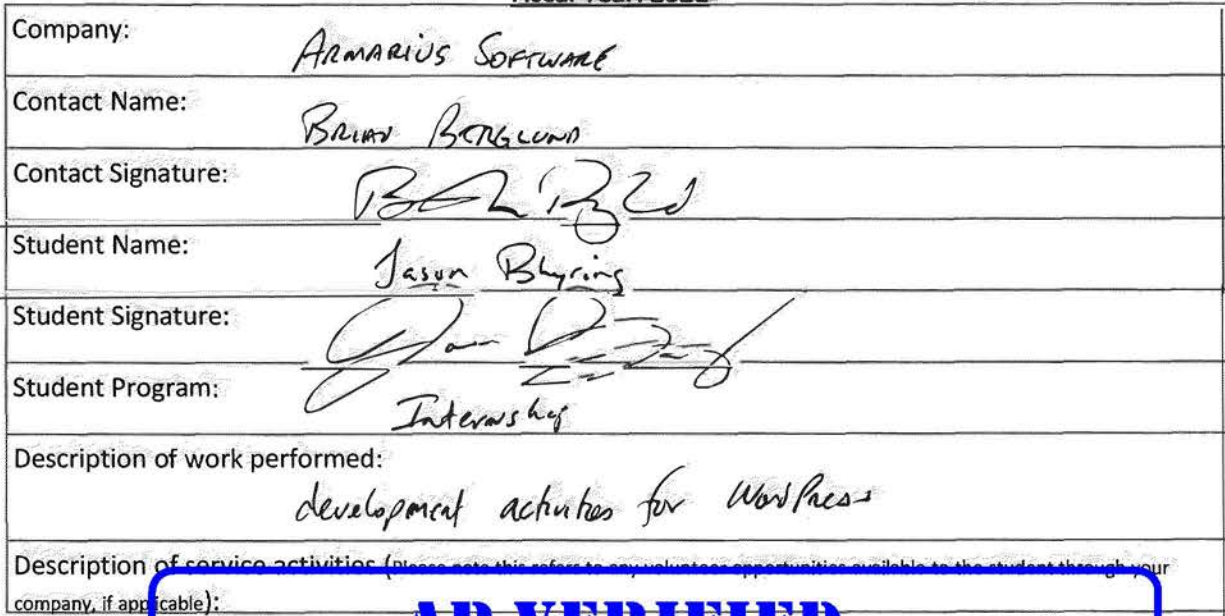 Company: ARMARIUS SOFTWARE
Contact Name: BRIAN BERGLUND
Contact Signature:
Student Name: Jason
Student Signature:
Student Program: Internship
Description of work performed:
development activities for WordPress
Description of service activities (Please note this refers to any volunteer opportunities available to the student through your
company, if applicable):
AP VERIFIED